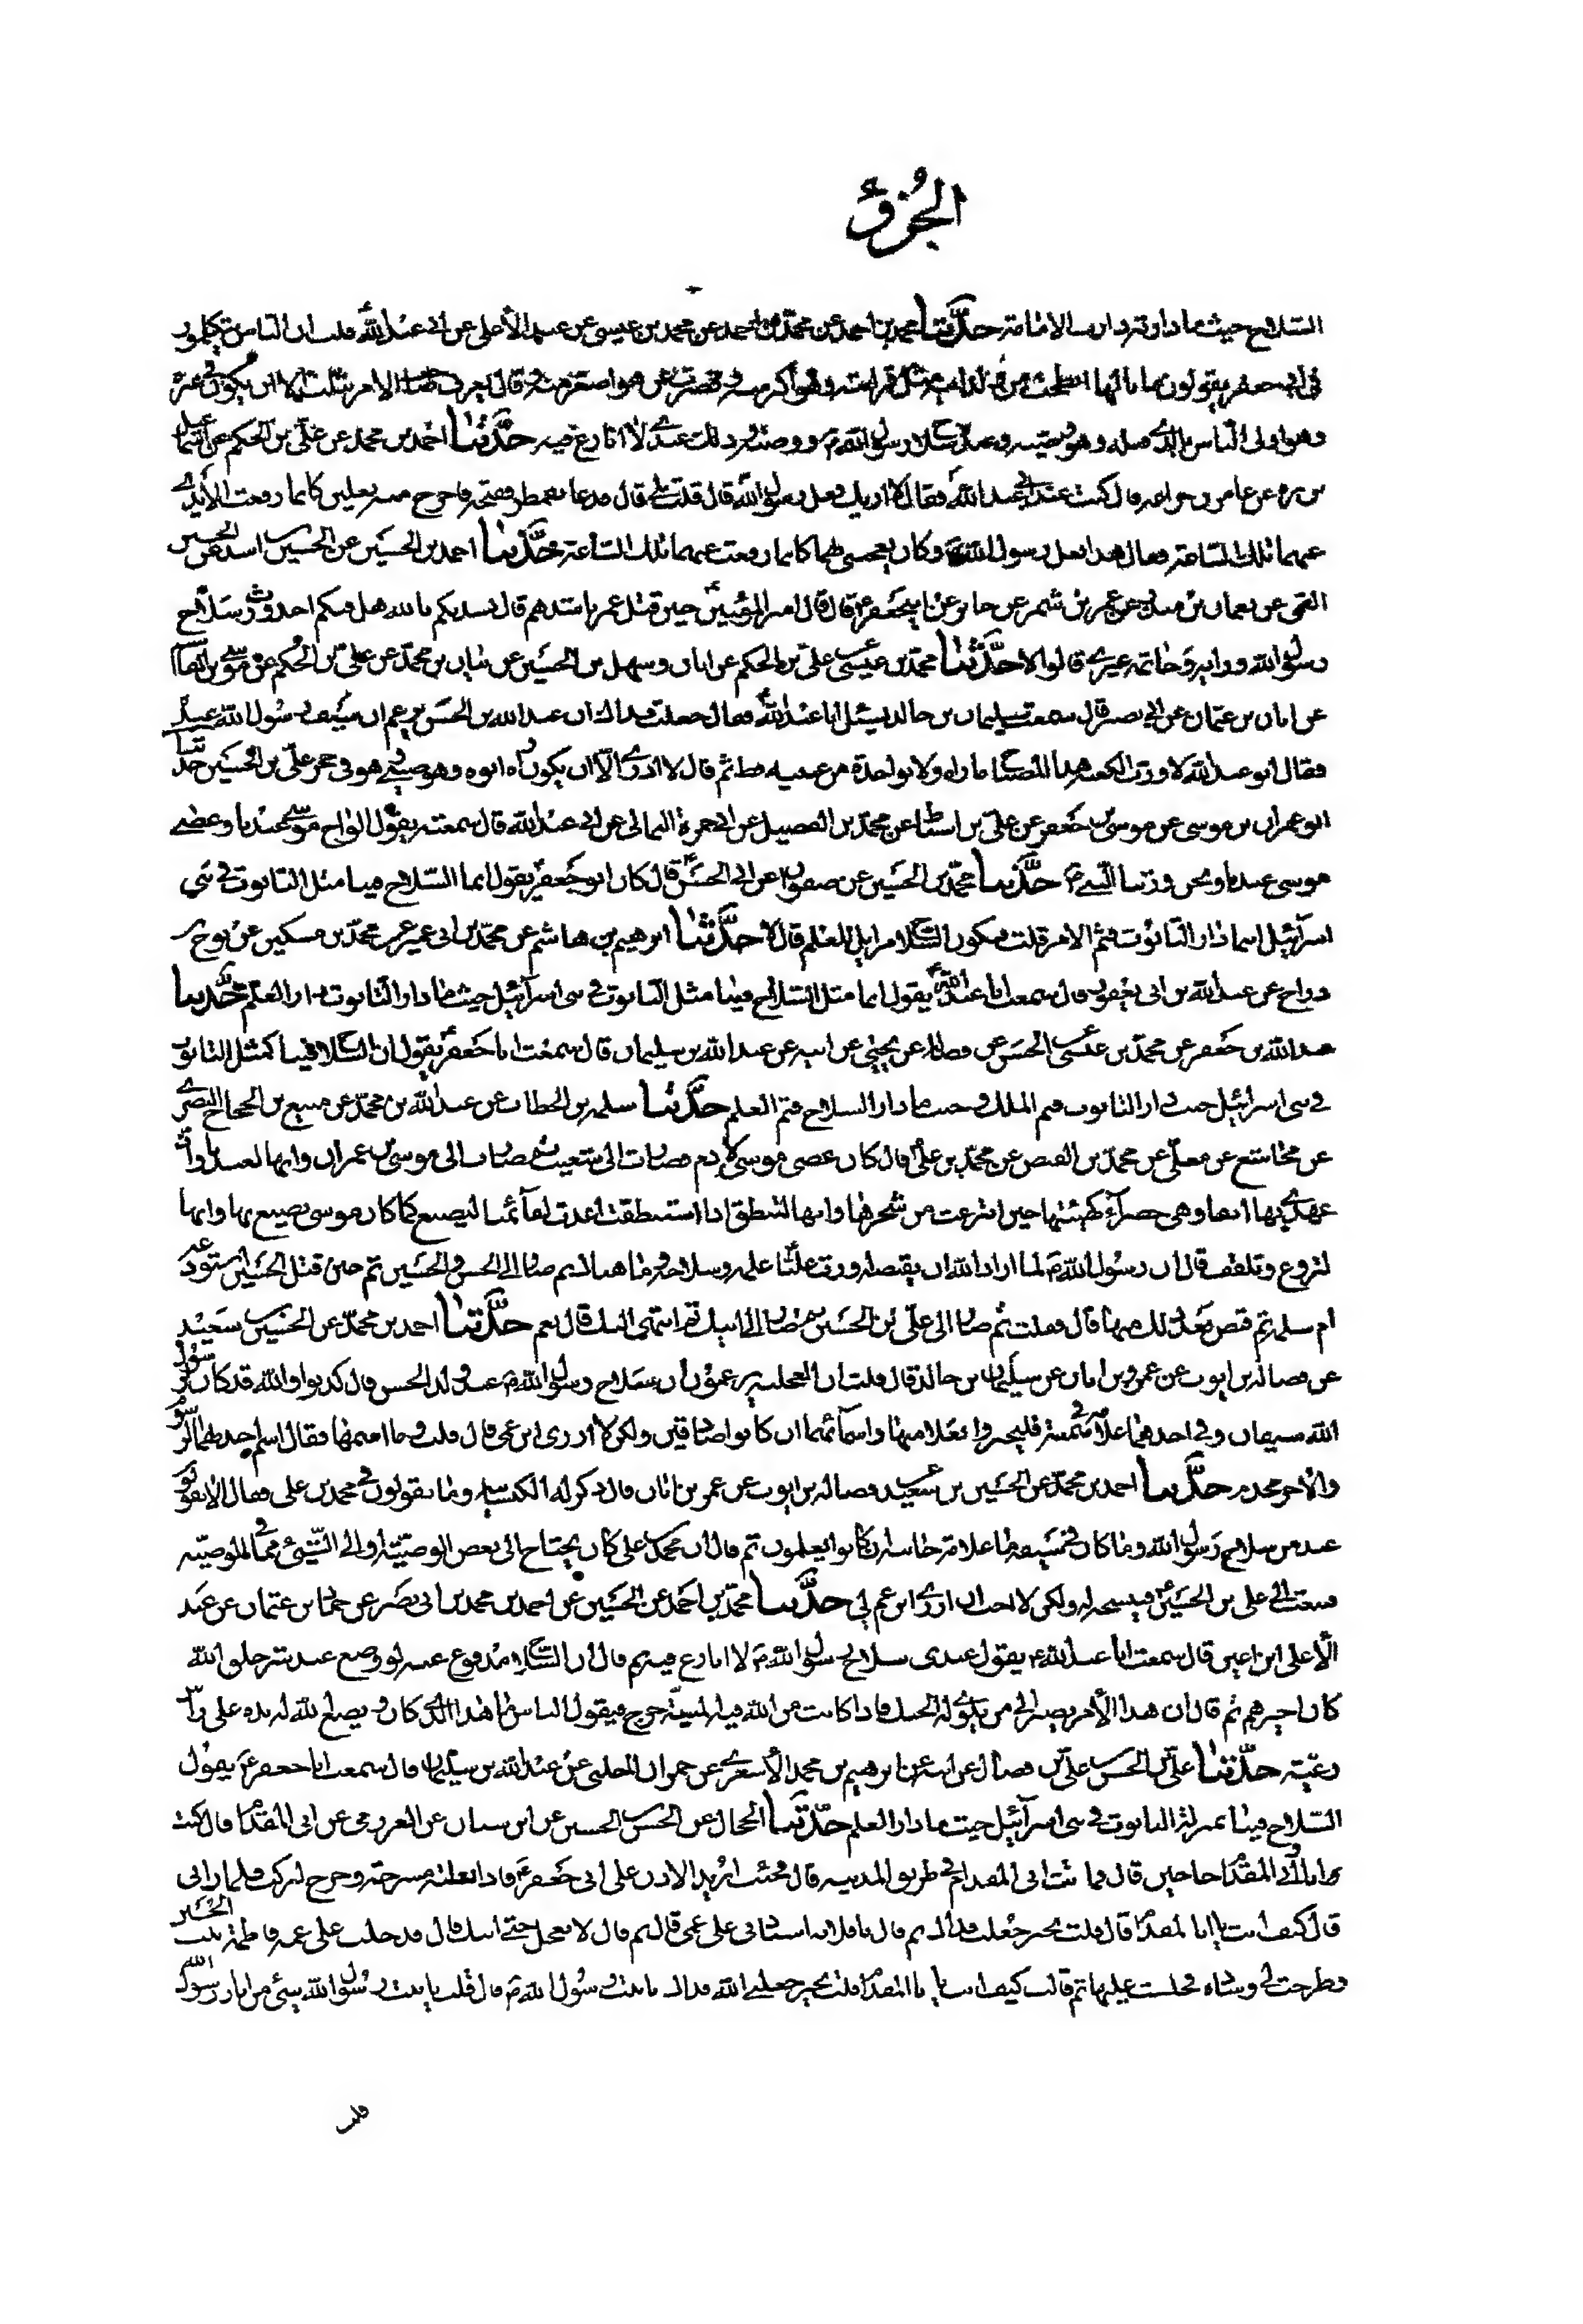 الجزؤ
السلاح حيث ما دارت دارت الامامة حدثنا محمد بن احمد عن محمد بن احمد عن محمد بن عيسى عن عبد الأعلى عن ابى عبد الله قلت ان الناس يتكلمون
فى ابى جعفر يقولون ما بالها من ولد ابيه مثل قرابته وهو اكبر منه وقصرت عمن هو اصغر منه قال يعرف صاحب الامر بثلث لا يكون فى غيره
وهو اولى الناس بالذى قبله وهو وصيه وعنده سلاح رسول الله ووصيته وذلك عندى لا انازع فيه حدثنا احمد بن محمد عن على بن الحكم عن
عن عامر بن جذاعه قال كنت عند ابى عبد الله فقال الا اريك نعل رسول الله قال قلت بلى قال فدعا بقمطر ففتحه فاخرج منه نعلين كانما رفعت الأيدى
عنهما تلك الساعة فقال هذا نعل رسول الله وكان يعجبنى بهما كانما رفعت عنهما تلك الساعة حدثنا احمد بن الحسين عن الحسين بن اسد عن الحسين
القمى عن نعمان بن منذر عن عمر بن شمر عن جابر عن ابى جعفر قال قال امير المؤمنين حين قتل عمر ناشدهم قال نشدتكم بالله هل فيكم احد ورث سلاح
رسول الله ودابته وخاتمه غيرى قالوا لا حدثنا محمد بن عيسى على بن الحكم عن ابان وسهل بن الحسين عن بنان بن محمد عن على بن الحكم عن
عن ابان بن عثمان عن ابى بصير قال سمعت سليمان بن خالد يسئل ابا عبد الله فقال جعلت فداك ان عبد الله بن الحسن يزعم ان سيف رسول الله عنده
فقال ابو عبد الله لا ورب الكعبة ما راه ولا بواحدة من عينيه قط ثم قال لا ادرى الا ان يكون راه ابوه وهو صبى وهو فى حجر على بن الحسين حدثنا
ابو عمران بن موسى عن موسى بن جعفر عن على بن اسباط عن محمد بن الفضيل عن ابى حمزة الثمالى عن ابى عبد الله قال سمعته يقول الواح موسى عندنا وعصى
موسى عندنا ونحن ورثنا النبى حدثنا محمد بن الحسين عن صفوان عن ابى الحسن قال كان ابو جعفر يقول انما السلاح فينا مثل التابوت فى بنى
اسرائيل اينما دار التابوت فثم الامر قلت فيكون السلاح مزايل للعلم قال لا حدثنا ابرهيم بن هاشم عن محمد بن ابى عمير عن محمد بن مسكين عن نوح بن
دراج عن عبد الله بن ابى يعفور قال سمعت ابا عبد الله يقول انما مثل السلاح فينا مثل التابوت فى بنى اسرائيل حيث ما دار التابوت دار العلم حدثنا
عبد الله بن جعفر عن محمد بن عيسى الحسن عن فضالة عن يحيى عن ابيه عن عبد الله بن سليمان قال سمعت ابا جعفر يقول ان السلاح فينا كمثل التابوت
فى بنى اسرائيل حيث دار التابوت فثم الملك وحيث ما دار السلاح فثم العلم حدثنا سلمة بن الخطاب عن عبد الله بن محمد عن منيع بن الحجاج البصرى
عن مجاشع عن معلى عن محمد بن الفيض عن محمد بن على قال كان عصى موسى لادم فصارت الى شعيب ثم صارت الى موسى بن عمران وانها لعندنا وان
عهدى بها انفا وهى خضراء كهيئتها حين انتزعت من شجرها وانها لتنطق اذا استنطقت اعدت لقائمنا ليصنع كما كان موسى يصنع بها وانها
لتروع وتلقف قال ان رسول الله لما اراد الله ان يقبضه ورث عليا علمه وسلاحه وما هناك ثم صار الى الحسن والحسين ثم حين قتل الحسين استودعه
ام سلمة ثم قبض بعد ذلك منها قال فقلت ثم صار الى على بن الحسين ثم صار الى ابيك ثم انتهى اليك قال نعم حدثنا احمد بن محمد عن الحسين بن سعيد
عن فضالة بن ايوب عن عمرو بن ابان عن سليمان بن خالد قال قلت ان العجلية يزعمون ان سلاح رسول الله عند ولد الحسن قال كذبوا والله قد كان لرسول
الله سيفان وفى احدهما علامة فى ميمنته فليخبروا بعلامتها واسمائهما ان كانوا صادقين ولكن لا ازرى ابن عمى قال قلت وما اسمهما فقال اسم احدهما الرسوم
والاخر مخذم حدثنا احمد بن محمد عن الحسين بن سعيد فضالة بن ايوب عن عمر بن ابان قال ذكر له الكيسانية وما يقولون فى محمد بن على فقال الا يقولون
عند من سلاح رسول الله وما كان فى سيفه من علامة جانبيه ان كانوا يعلمون ثم قال ان محمد بن على كان يحتاج الى بعض الوصية او الى الشىء مما فى الوصية
فبعث الى على بن الحسين فينسخه له ولكن لا احب ان ازرى ابن عم لى حدثنا محمد بن احمد عن الحسين عن احمد بن محمد بن ابى نصر عن حماد بن عثمان عن عبد
الأعلى ابن اعين قال سمعت ابا عبد الله يقول عندى سلاح رسول الله لا انازع فيه ثم قال ان السلاح مدفوع عنه لو وضع عند شر خلق الله
كان اخيرهم ثم قال ان هذا الأمر يصير الى من يلوى له الحنك فاذا كانت من الله فيه المشية خرج فيقول الناس ما هذا الذى كان ويضع الله له يده على رأس
رعيته حدثنا على بن الحسن على بن فضال عن ابيه عن ابرهيم بن محمد الأشعرى عن حمران الحلبى عن عبد الله بن سليمان قال سمعت ابا جعفر يقول
السلاح فينا بمنزلة التابوت فى بنى اسرائيل حيث ما دار دار العلم حدثنا الحجال عن الحسن الحسين عن ابن سنان عن العرزمى عن ابى المقدام قال كنت
انا وابى المقدام حاجين قال فماتت ام ابى المقدام فى طريق المدينة قال فجئت اريد الاذن على ابى جعفر فاذا بغلته مسرجة وخرج ليركب فلما رانى
قال كيف انت يا ابا المقدام قال قلت بخير جعلت فداك ثم قال يا فلانة استاذنى على عمتى قال ثم قال لا تعجل حتى اتيك قال فدخلت على عمته فاطمة بنت الحسين
وطرحت لى وسادة فجلست عليها ثم قالت كيف انت يا ابا المقدام قلت بخير جعلنى الله فداك يا بنت رسول الله قال قلت يا بنت رسول الله شىء من اثار رسول الله
قلت